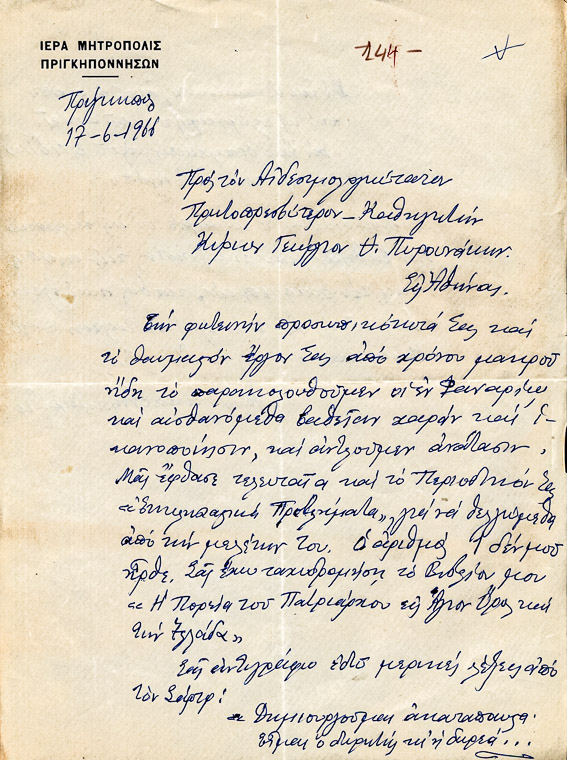 ΙΕΡΑ ΜΗΤΡΟΠΟΛΙΣ
ΠΡΙΓΚΗΠΟΝΝΗΣΩΝ
244 –
Πρίγκηπος
17-6-1966
Πρός τόν Αἰδεσιμολογιώτατον
Πρωτοπρεσβύτερον – Καθηγητήν
Κύριον Γεώργιον Πυρουνάκην.
Εἰς Ἀθήνας.
Τήν φωτεινήν προσωπικότητά Σας καί
τό θαυμαστόν ἔργον Σας ἀπό χρόνου μακροῦ
ἤδη τό παρακολουθοῦμεν οἱ ἐν Φαναρίῳ
καί αἰσθανόμεθα βαθεῖαν χαράν καί ἱ-
κανοποίησιν, καί ἀντλοῦμεν ἀνάτασιν.
Μᾶς ἔφθασε τελευταῖα καί τό Περιοδικόν Σας
«Ἐκκλησιαστικά Προβλήματα», γιά νά βελτιώμεθα
ἀπό τήν μελέτην του. Ὁ ἀριθμός 1 δέν μοῦ
ἦρθε. Σᾶς ἔχω ταχυδρομήσει τό Βιβλίον μου
«Ἡ Πορεία τοῦ Πατριάρχου εἰς Ἅγιον Ὄρος καί
τήν Ἑλλάδα»
Σᾶς ἀντιγράφω ἐδῶ μερικές λέξεις ἀπό
τόν Σάρτρ:
« Δημιουργοῦμαι ἀκατάπαυστα·
εἶμαι ὁ δωρητής κι' ἡ δωρεά...